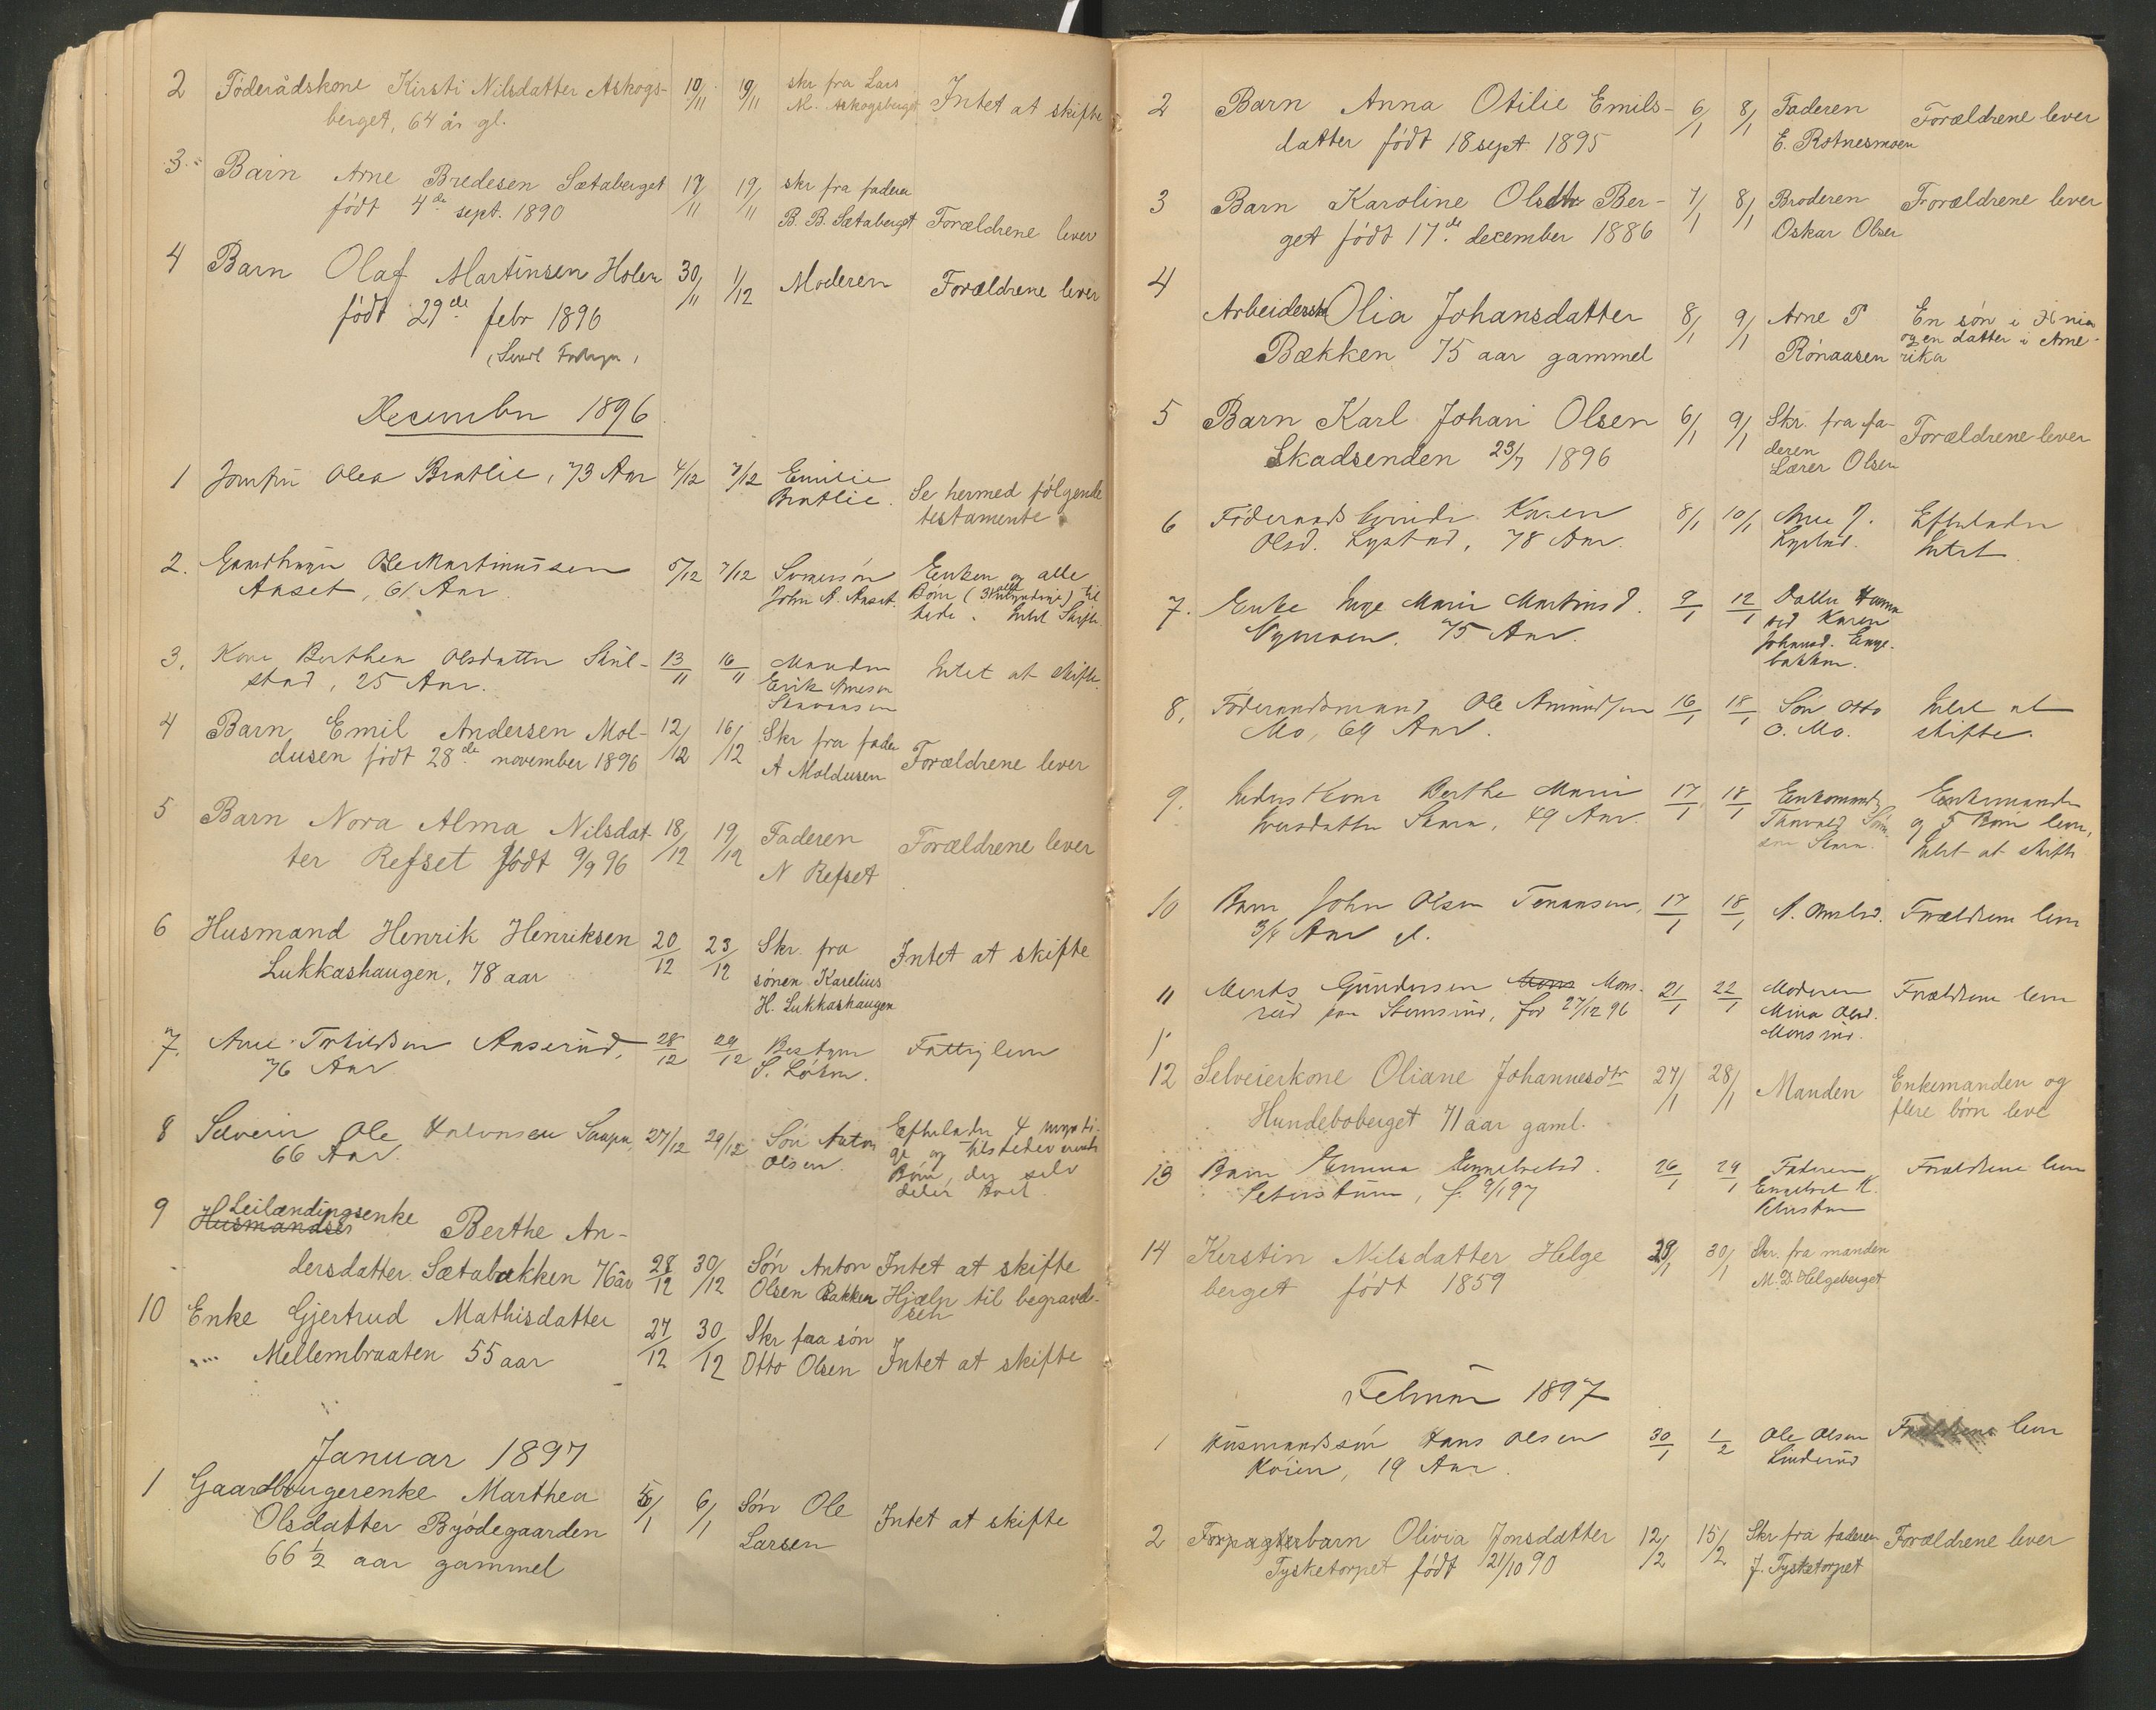 2 Föderådskone Kirsti Nilsdatter Askogs- 10/11 19/11 skr fra Lars
berget, 64 år gl. M. Askogsberget Intet at skifte
3 Barn Arne Bredesen Sætaberget 17/11 19/11 skr fra faderen
födt 4de sept. 1890 B. B. Sætaberget Forældrene lever
4 Barn Olaf Martinsen Holen 30/11 1/12 Moderen Forældrene lever
födt 29de febr 1896
December 1896
1 Jomfru Olea Bratlie, 73 Aar 4/12 7/12 Emilie
Bratlie. Se hermed følgende
testamente
2. Gaardbruger Ole Martinussen 5/12 7/12 Svigersön Enken og alle
Aaset, 61 Aar John A. Aaset. Börn til
stede. Intet Skifte
3. Kone Berthea Olsdatter Skul- 13/11 16/11 Manden Intet at skifte.
stad, 25 Aar. Erik Arnesen
4 Barn Emil Andersen Mol- 12/12 16/12 Skr fra fader
dusen födt 28de november 1896 A Moldusen Forældrene lever
5 Barn Nora Alma Nilsdat- 18/12 19/12 Faderen Forældrene lever
ter Refset födt 9/9 96 N Refset
6 Husmand Henrik Henriksen 20/12 23/12 Skr. fra Intet at skifte
Lukkashaugen, 78 aar sönen Karelius
H. Lukkashaugen
7. Arne Aaserud, 28/12 29/12 Bestyrer Fattiglem
76 Aar S. Löken.
8 Selveier Ole Halvorsen 27/12 29/12 Sön Anton Efterlader 4 myndi-
66 Aar. Olsen. ge og tilstedeværende
Börn, der selv
deler Boet
9 Leilændingsenke
Husmandsen Berthe An-
dersdatter Sætabakken 76 år 28/12 30/12 Sön Anton Intet at skifte
Olsen Bakken Hjælp til begravel-
sen
10 Enke Gjertrud Mathisdatter 27/12 30/12 Skr fraa sön
Mellembraaten 55 aar Otto Olsen Intet at skifte
Januar 1897
1 Gaardbrugerenke Marthea 5/1 6/1 Sön Ole Intet at skifte
Olsdatter Byödegaarden Larsen
66 1/2 aar gammel
2 Barn Anna Otilie Emils- 6/1 8/1 Faderen Forældrene lever
datter födt 18 sept. 1895 E. Rotnesmoen
3 Barn Karoline Olsdtr Ber- 7/1 8/1 Broderen Forældrene lever
get födt 17de december 1886 Oskar Olsen
4
Arbeidersk Olia Johansdatter 8/1 9/1 Arne P En sön i Xnia
Bækken 75 aar gammel Rönaasen og en datter i Ame-
rika
5 Barn Karl Johan Olsen 6/1 9/1 Skr. fra fa- Forældrene lever
Skadsenden 23/7 1896 deren
Lærer Olsen
6 Föderaadskvinde Karen 8/1 10/1 Arne J. Efterlader
Olsd. Lystad, 78 Aar. Lystad. Intet.
7. Enke Inge Marie Martinsd. 9/1 12/1 Datter
Nymoen. 75 Aar. Karen
Johansd. Enge-
bakken.
8. Föderaadsmand Ole Amundsen 16/1 18/1 Sön Otto Intet at
Mo, 69 Aar. O. Mo. skifte.
9. Inderstkone Berthe Marie 17/1 18/1 Enkemand Enkemanden
Iversdatter Skara, 49 Aar. Thorvald og 5 Börn lever,
Skara. Intet at skifte
10 Barn John Olsen 17/1 18/1 Forældrene lever
3/4 Aar gl.
11 Gundersen Mons Mons- 21/1 22/1 Moderen Forældrene lever
rud, för 27/12 96 Mina Olsd.
Monsrud.
12 Selveierkone Oliane Johannesdtr 27/1 28/1 Manden Enkemanden og
Hundeboberget 71 aar gaml. flere börn leve
13 Barn Emma Engebretsd. 26/1 29/1 Faderen Forældrene lever
f. 9/1 97 Engebret K.
14 Kerstin Nilsdatter Helge 29/1 30/1 Skr. fra manden
berget födt 1859 M. D. Helgeberget
Februar 1897
1 Husmandssön Hans Olsen 30/1 1/2 Ole Olsen Forældrene lever
Koien, 19 Aar. Linderud
2 Forpagterbarn Olivia Jonsdatter 12/2 15/2 Skr fra faderen Forældrene lever
Tysketorpet födt 21/10 90 J. Tysketorpet